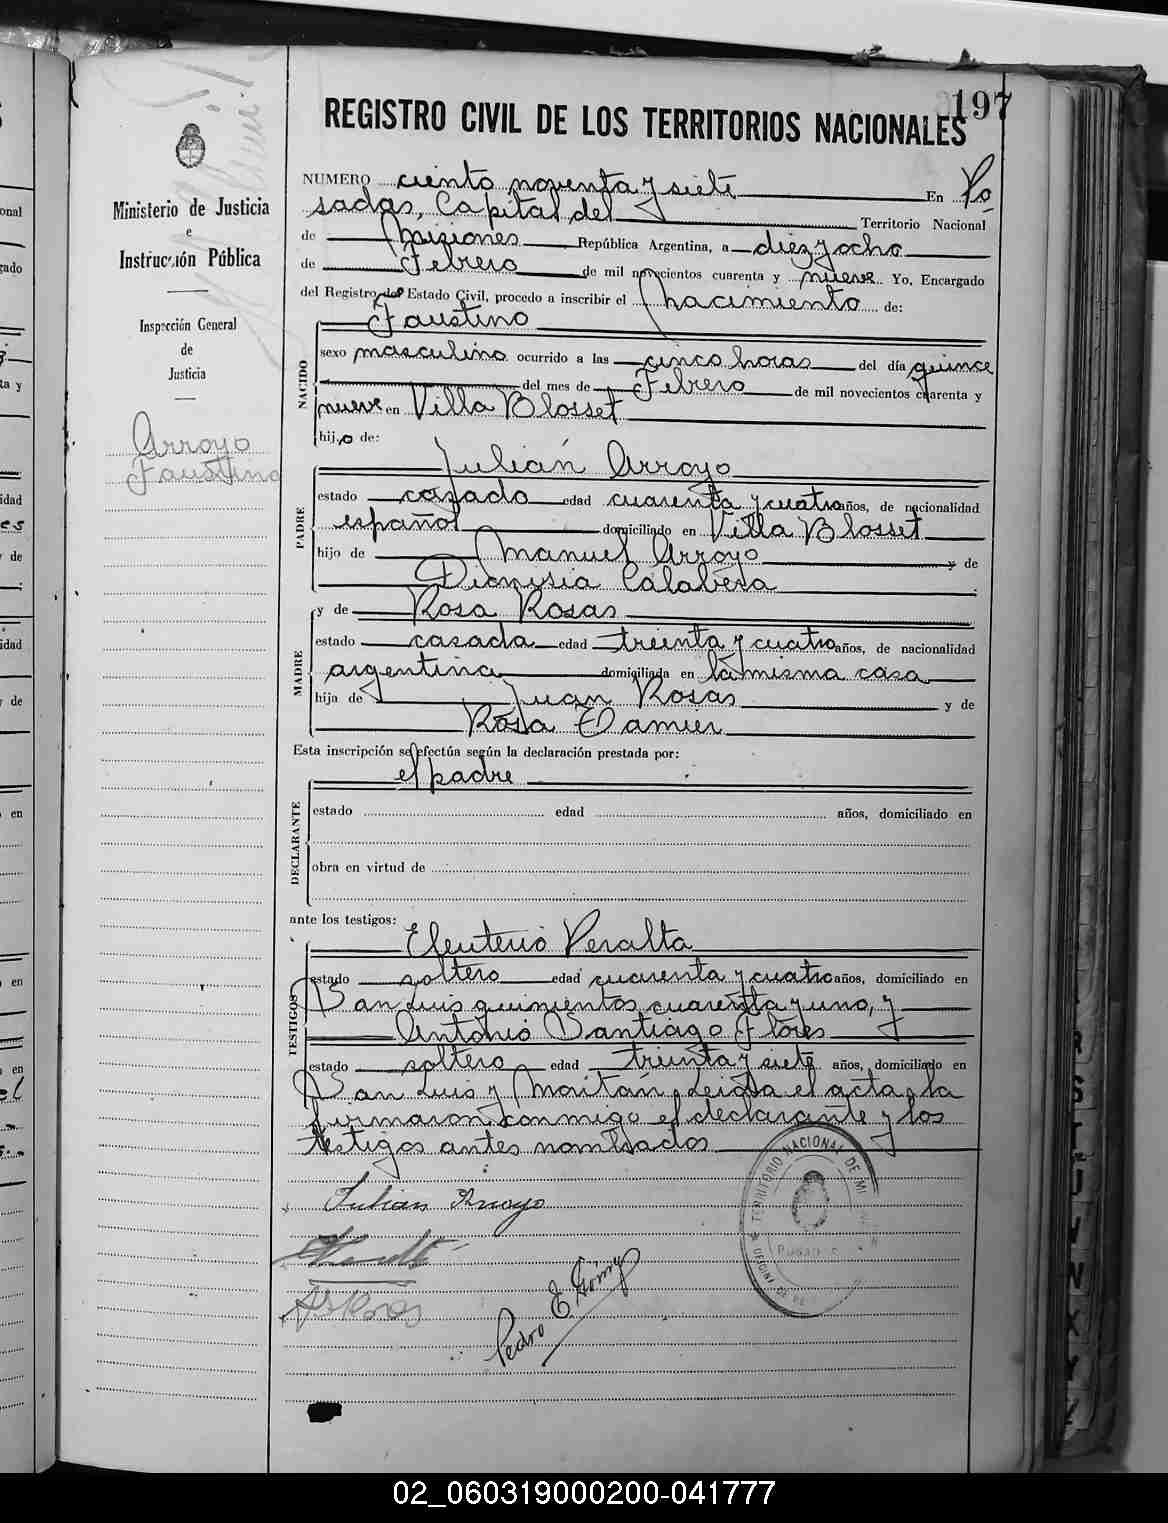 197
REGISTRO CIVIL DE LOS TERRITORIOS NACIONALES
Ministerio de Justicia
e
Instrucción Pública
Inspección General
de
Justicia
Arroyo
Faustino
NUMERO ciento noventa y siete En Po
sadas, Capital del Territorio Nacional
de Misiones República Argentina, a diez y ocho
de Febrero de mil novecientos cuarenta y nueve Yo, Encargado
del Registro del Estado Civil, procedo a inscribir el nacimiento de:
NACIDO
Faustino
sexo masculino ocurrido a las cinco horas del día quince
del mes de Febrero de mil novecientos cuarenta y
nueve en Villa Blosset
hijo de:
PADRE
Julián Arroyo
estado casado edad cuarenta y cuatro años, de nacionalidad
español domiciliado en Villa Blosset
hijo de Manuel Arroyo y de
Dionysia Calabera
y de Rosa Rosas
MADRE
estado casada edad treinta y cuatro años, de nacionalidad
argentina domiciliada en la misma casa
hija de Juan Rosas y de
Rosa Damier
Esta inscripción se efectúa según la declaración prestada por:
el padre
DECLARANTE
estado edad años, domiciliado en
obra en virtud de
ante los testigos:
TESTIGOS
Eleuterio Peralta
estado soltero edad cuarenta y cuatro años, domiciliado en
San Luis quinientos cuarenta y uno, y
Antonio Santiago Flores
estado soltero edad treinta y siete años, domiciliado en
San Luis y Maitán. Leida el acta, la
firmaron conmigo el declarante y los
testigos antes nombrados
Julian Arroyo
Pedro E Gómez
TERRITORIO NACIONAL DE MI
OFICINA DE
POSADAS
02_060319000200-041777